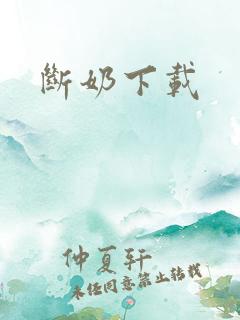 斷奶下載
仲夏轩
未经同意禁止转载